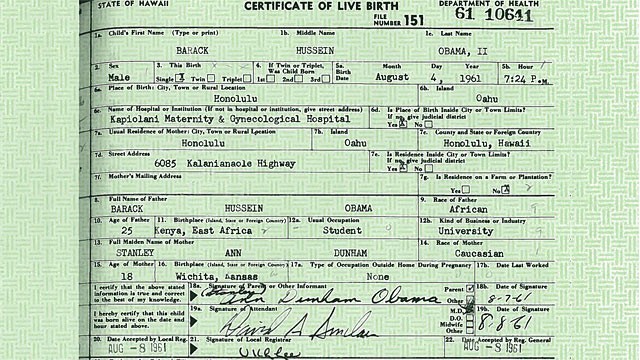 STATE OF HAWAII CERTIFICATE OF LIVE BIRTH DEPARTMENT OF HEALTH
FILE NUMBER 151 61 10641
1a. Child's First Name (Type or print) 1b. Middle Name 1c. Last Name
BARACK HUSSEIN OBAMA, II
2. Sex 3. This Birth 4. If Twin or Triplet, Was Child Born 5a. Birth Date Month Day Year 5b. Hour
Male Single X Twin Triplet 1st 2nd 3rd August 4, 1961 7:24 P.M.
6a. Place of Birth: City, Town or Rural Location 6b. Island
Honolulu Oahu
6c. Name of Hospital or Institution (If not in hospital or institution, give street address) 6d. Is Place of Birth Inside City or Town Limits? If no, give judicial district
Kapiolani Maternity & Gynecological Hospital Yes X No
7a. Usual Residence of Mother: City, Town or Rural Location 7b. Island 7c. County and State or Foreign Country
Honolulu Oahu Honolulu, Hawaii
7d. Street Address 7e. Is Residence Inside City or Town Limits? If no, give judicial district
6085 Kalanianaole Highway Yes X No
7f. Mother's Mailing Address 7g. Is Residence on a Farm or Plantation?
Yes No X
8. Full Name of Father 9. Race of Father
BARACK HUSSEIN OBAMA African
10. Age of Father 11. Birthplace (Island, State or Foreign Country) 12a. Usual Occupation 12b. Kind of Business or Industry
25 Kenya, East Africa Student University
13. Full Maiden Name of Mother 14. Race of Mother
STANLEY ANN DUNHAM Caucasian
15. Age of Mother 16. Birthplace (Island, State or Foreign Country) 17a. Type of Occupation Outside Home During Pregnancy 17b. Date Last Worked
18 Wichita, Kansas None
I certify that the above stated information is true and correct to the best of my knowledge. 18a. Signature of Parent or Other Informant Parent Other 18b. Date of Signature
(Stanley) Ann Dunham Obama 8-7-61
I hereby certify that this child was born alive on the date and hour stated above. 19a. Signature of Attendant M.D. D.O. Midwife Other 19b. Date of Signature
David A Sinclair 8-8-61
20. Date Accepted by Local Reg. 21. Signature of Local Registrar 22. Date Accepted by Reg. General
AUG -8 1961 UKLee AUG -8 1961